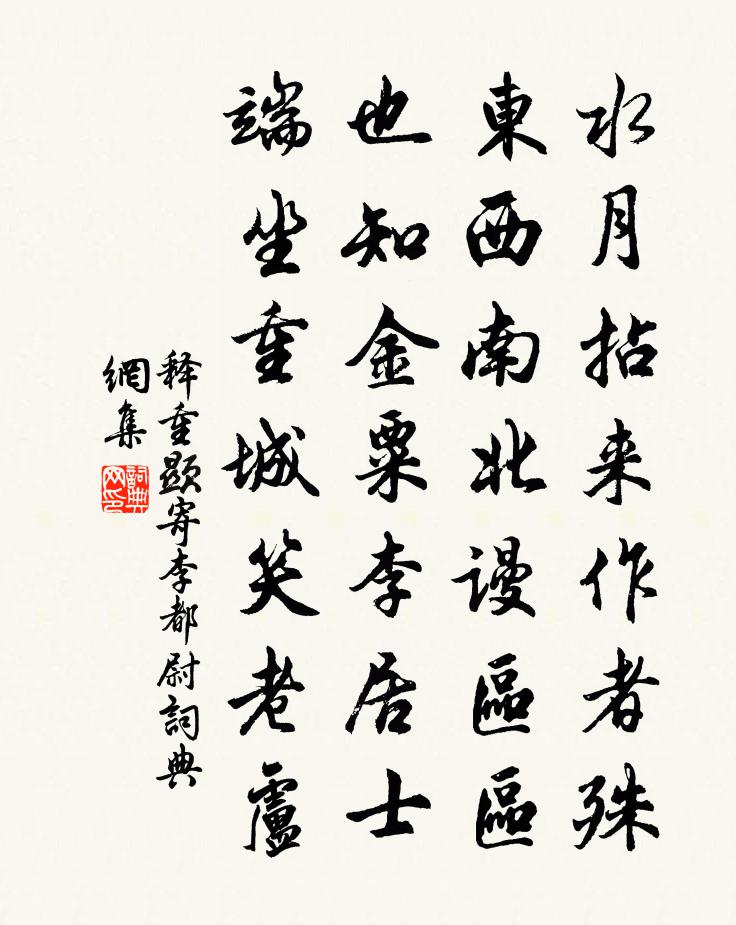 水月拈来作者殊
東西南北謾區區
也知金粟李居士
端坐重城笑老盧
释重顕寄李都尉詞典
網集
詞典網印